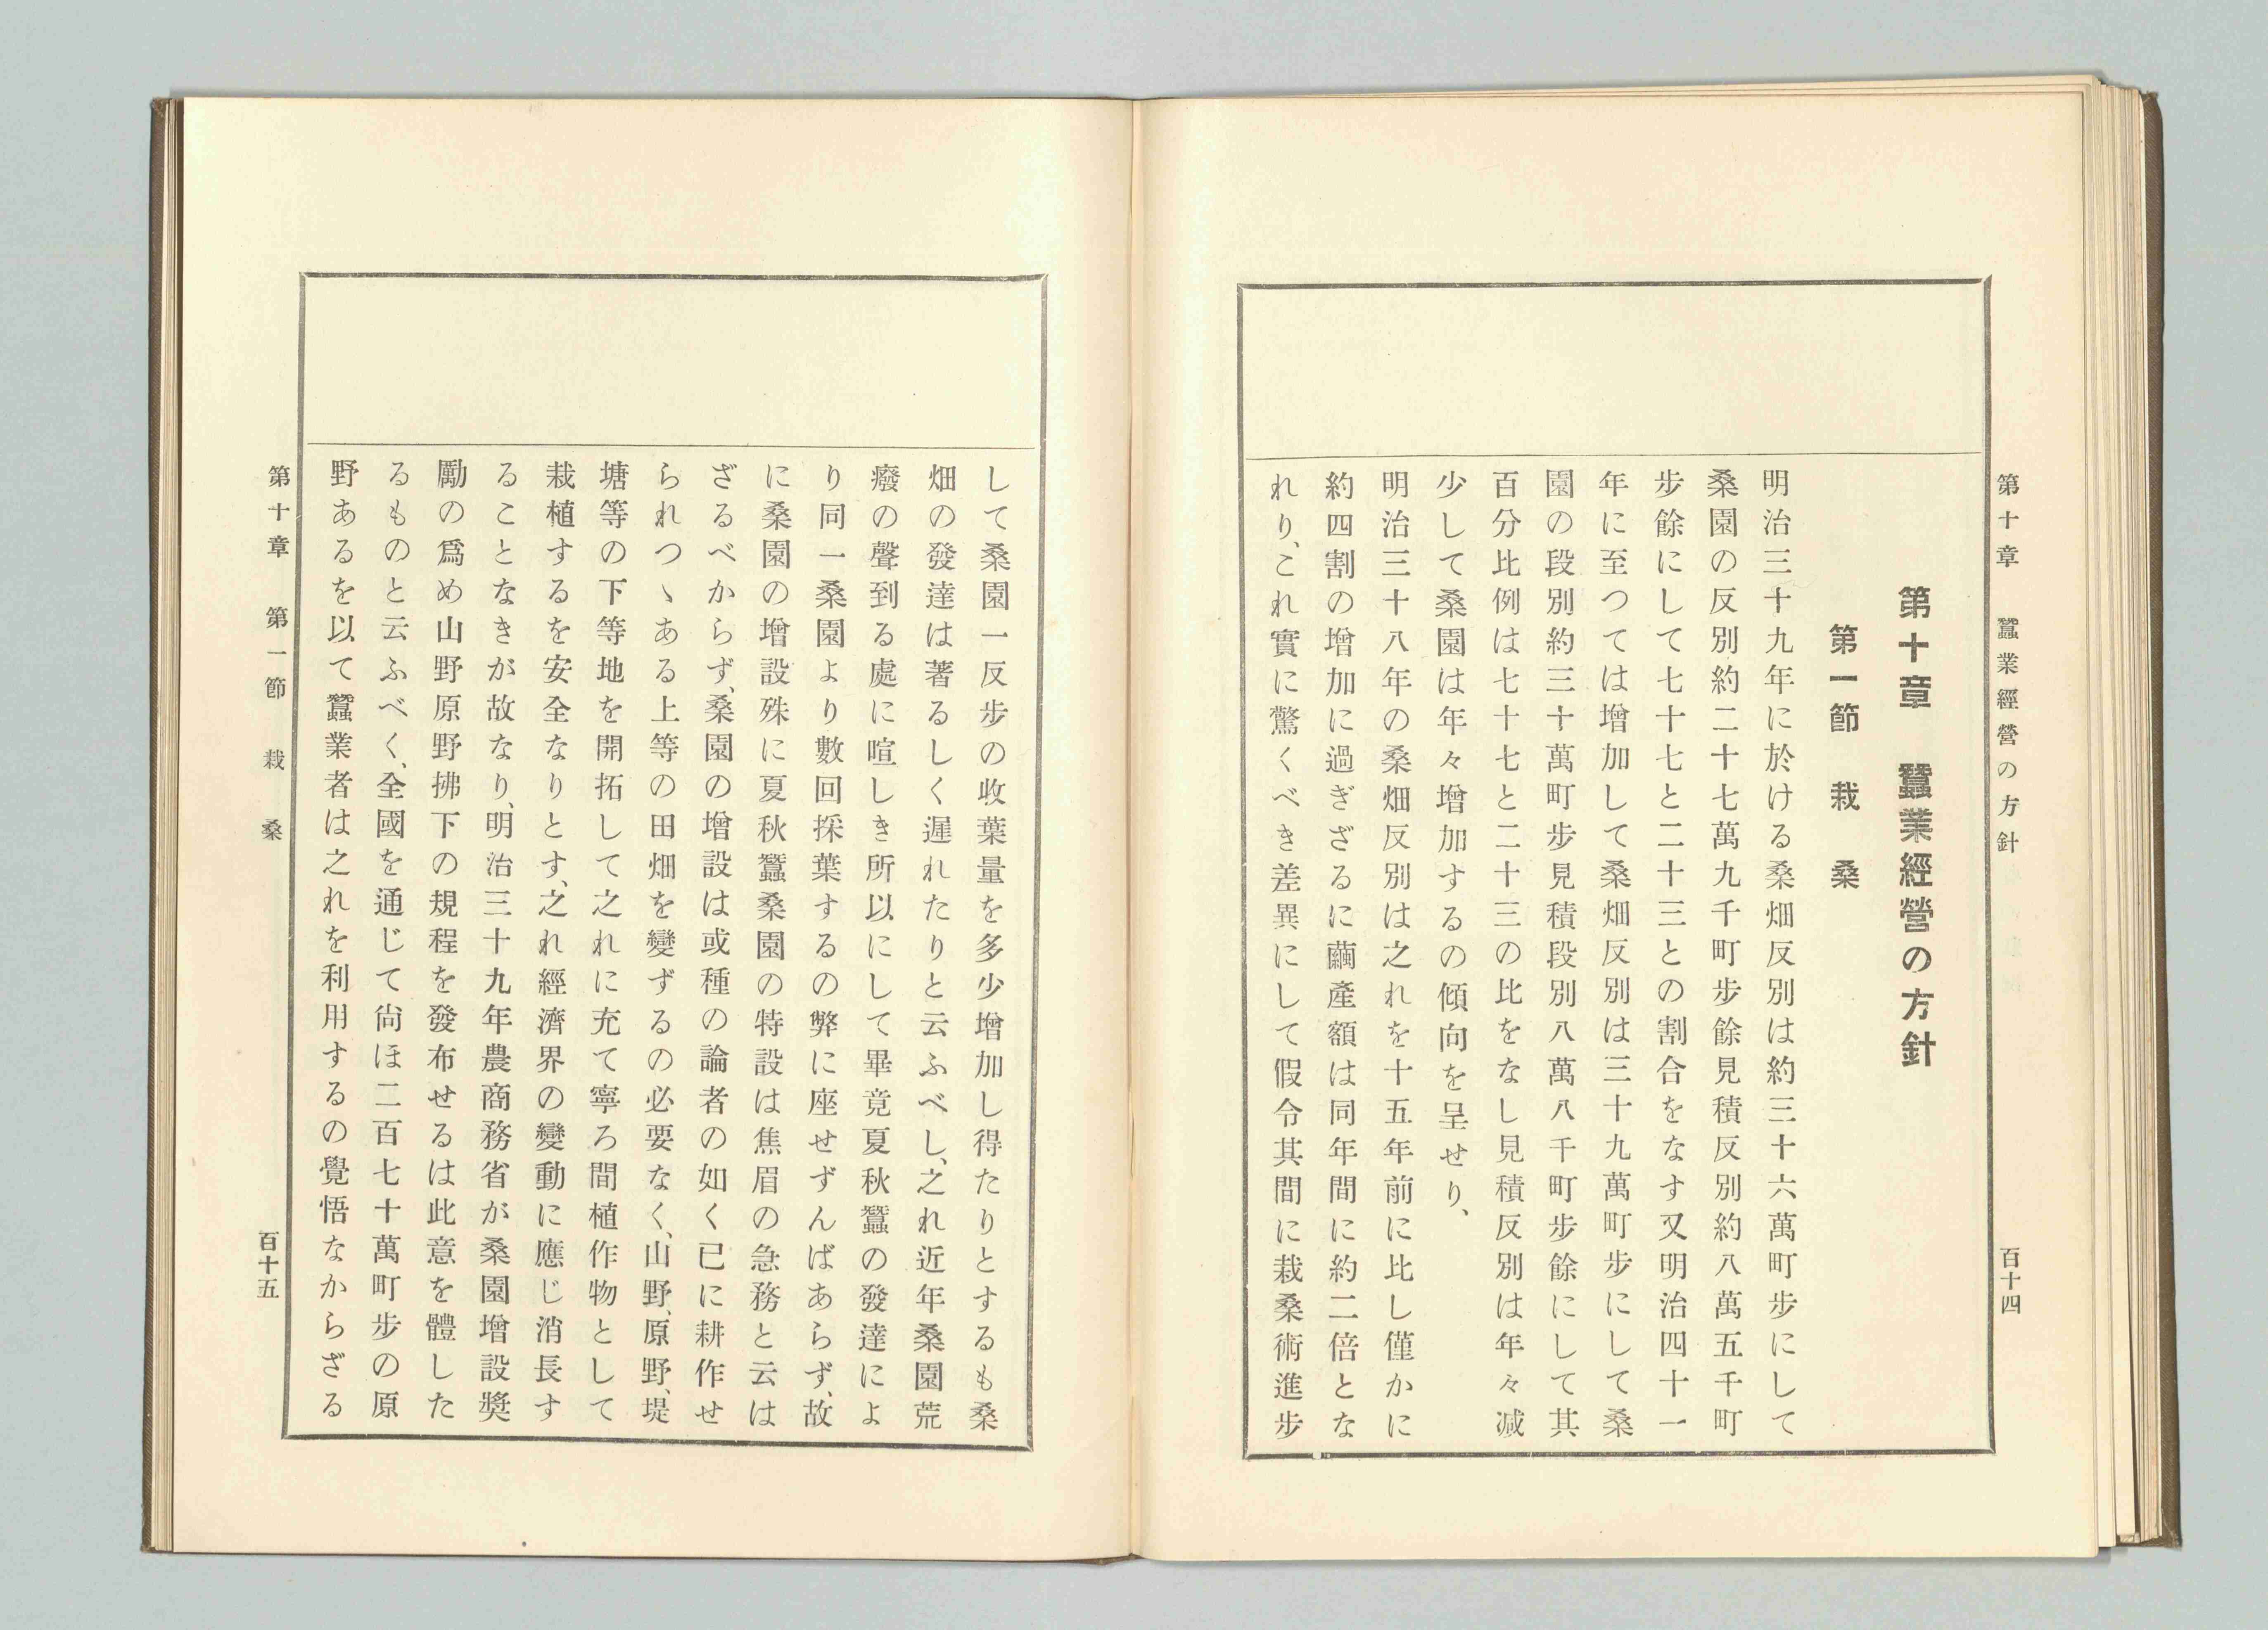 第十章　蠶業經營の方針
百十四
第十章　蠶業經營の方針
第一節　栽　桑
明治三十九年に於ける桑畑反別は約三十六萬町步にして
桑園の反別約二十七萬九千町步餘見積反別約八萬五千町
步餘にして七十七と二十三との割合をなす又明治四十一
年に至つては增加して桑畑反別は三十九萬町步にして桑
園の段別約三十萬町步見積段別八萬八千町步餘にして其
百分比例は七十七と二十三の比をなし見積反別は年々減
少して桑園は年々增加するの傾向を呈せり、
明治三十八年の桑畑反別は之れを十五年前に比し僅かに
約四割の增加に過ぎざるに繭產額は同年間に約二倍とな
れり、これ實に驚くべき差異にして假令其間に栽桑術進步
して桑園一反步の收葉量を多少增加し得たりとするも桑
畑の發達は著るしく遲れたりと云ふべし、之れ近年桑園荒
癈の聲到る處に喧しき所以にして畢竟夏秋蠶の發達によ
り同一桑園より數回採葉するの弊に座せずんばあらず、故
に桑園の增設殊に夏秋蠶桑園の特設は焦眉の急務と云は
ざるべからず、桑園の增設は或種の論者の如く已に耕作せ
られつゝある上等の田畑を變ずるの必要なく、山野、原野、堤
塘等の下等地を開拓して之れに充て寧ろ間植作物として
栽植するを安全なりとす、之れ經濟界の變動に應じ消長す
ることなきが故なり、明治三十九年農商務省が桑園增設奬
勵の爲め山野原野拂下の規程を發布せるは此意を體した
るものと云ふべく、全國を通じて尙ほ二百七十萬町步の原
野あるを以て蠶業者は之れを利用するの覺悟なからざる
第十章　第一節　栽　桑
百十五